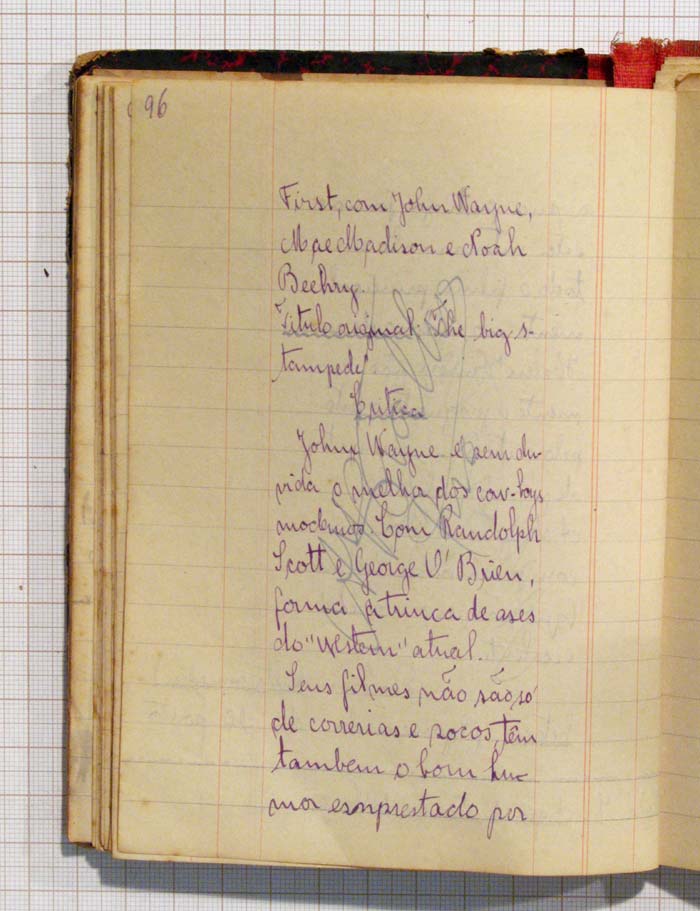 96
First, com John Wayne,
Mae Madison e Noah
Beehry.
Titulo original: "The big s-
tampede"
Critica
John Wayne é sem du-
vida o melhor dos cow-boys
modernos. Com Randolph
Scott e George O'Brien,
forma a trinca de ases
do "western" atual.
Seus filmes não são só
de correrias e socos, têm
tambem o bom hu-
mor emprestado por